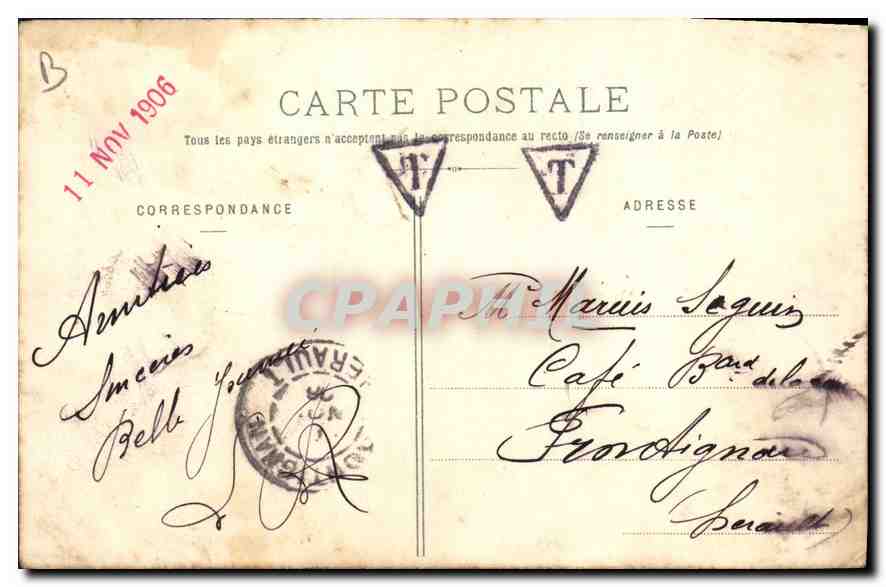 B
11 NOV 1906
CARTE POSTALE
Tous les pays étrangers n'acceptent pas la correspondance au recto (Se renseigner à la Poste)
T T
CORRESPONDANCE
ADRESSE
Amitiés
Sincères
Belle journée
HERAULT
CPAPHIL
M Marius Seguin
Café Bard de la
Frontignan
Herault